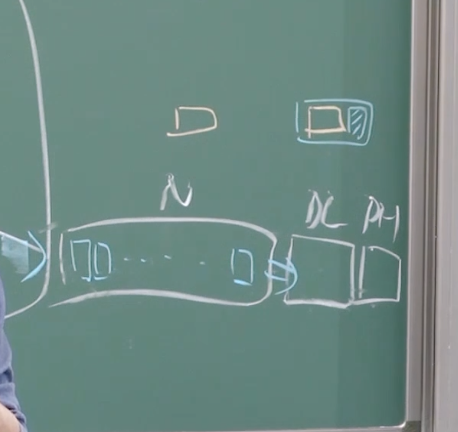 N
DL PH